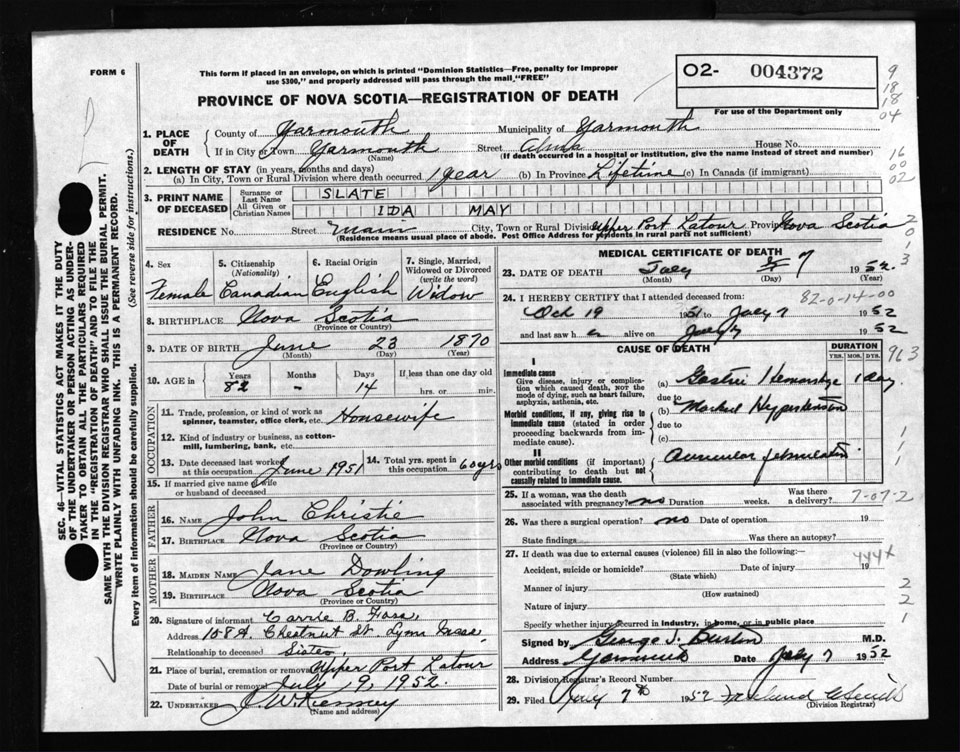 FORM 6
This form if placed in an envelope, on which is printed "Dominion Statistics—Free, penalty for improper
use $300," and properly addressed will pass through the mail, "FREE"
O2- 004372
For use of the Department only
9
18
18
04
PROVINCE OF NOVA SCOTIA—REGISTRATION OF DEATH
1. PLACE OF DEATH
County of Yarmouth Municipality of Yarmouth
If in City or Town Yarmouth (Name) Street Alma House No.
(If death occurred in a hospital or institution, give the name instead of street and number)
16
00
02
2. LENGTH OF STAY (in years, months and days)
(a) In City, Town or Rural Division where death occurred 1 year (b) In Province Lifetime (c) In Canada (if immigrant)
3. PRINT NAME OF DECEASED
Surname or Last Name SLATE
All Given or Christian Names IDA MAY
RESIDENCE No. Street Main City, Town or Rural Division Upper Port Latour Province Nova Scotia
(Residence means usual place of abode. Post Office Address for residents in rural parts not sufficient)
2
0
1
3
4. Sex Female
5. Citizenship (Nationality) Canadian
6. Racial Origin English
7. Single, Married, Widowed or Divorced (write the word) Widow
8. BIRTHPLACE Nova Scotia
(Province or Country)
9. DATE OF BIRTH June 23 1870
(Month) (Day) (Year)
10. AGE in Years 82 Months - Days 14 If less than one day old hrs. or min.
OCCUPATION
11. Trade, profession, or kind of work as spinner, teamster, office clerk, etc. Housewife
12. Kind of industry or business, as cotton-mill, lumbering, bank, etc.
13. Date deceased last worked at this occupation June 1951
14. Total yrs. spent in this occupation 60 yrs
15. If married give name of wife or husband of deceased
FATHER
16. NAME John Christie
17. BIRTHPLACE Nova Scotia
(Province or Country)
MOTHER
18. MAIDEN NAME Jane Dowling
19. BIRTHPLACE Nova Scotia
(Province or Country)
20. Signature of informant Carrie B.
Address 108 A. Chestnut St. Lynn Mass.
Relationship to deceased Sister
21. Place of burial, cremation or removal Upper Port Latour
Date of burial or removal July 9, 1952
22. UNDERTAKER J. W. Kenney
(Name and address)
MEDICAL CERTIFICATE OF DEATH
23. DATE OF DEATH July 7 1952
(Month) (Day) (Year)
24. I HEREBY CERTIFY that I attended deceased from: 82-0-14-00
Oct 19 1951 to July 7 1952
and last saw h alive on July 7 1952
CAUSE OF DEATH
DURATION
YRS. MOS. DYS.
963
I
Immediate cause
Give disease, injury or complication which caused death, NOT the mode of dying, such as heart failure, asphyxia, asthenia, etc.
(a) Gastric Hemorrhage 1 day
due to
Morbid conditions, if any, giving rise to immediate cause (stated in order proceeding backwards from immediate cause).
(b) Marked Hypertension
due to
(c)
II
Other morbid conditions (if important) contributing to death but not causally related to immediate cause.
Auricular fibrillation
1
1
1
25. If a woman, was the death associated with pregnancy? no Duration weeks. Was there a delivery? 7-07-2
26. Was there a surgical operation? no Date of operation 19
State findings Was there an autopsy?
27. If death was due to external causes (violence) fill in also the following:—
444X
Accident, suicide or homicide? Date of injury 19
(State which)
Manner of injury
(How sustained)
Nature of injury
2
2
1
Specify whether injury occurred in industry, in home, or in public place
Signed by George J. Burton M.D.
Address Yarmouth Date July 7 1952
28. Division Registrar's Record Number
29. Filed July 7th 1952
(Division Registrar)
SEC. 46—VITAL STATISTICS ACT MAKES IT THE DUTY
OF THE UNDERTAKER OR PERSON ACTING AS UNDER-
TAKER TO OBTAIN ALL THE PARTICULARS REQUIRED
IN THE "REGISTRATION OF DEATH" AND TO FILE THE
SAME WITH THE DIVISION REGISTRAR WHO SHALL ISSUE THE BURIAL PERMIT.
WRITE PLAINLY WITH UNFADING INK. THIS IS A PERMANENT RECORD.
Every item of information should be carefully supplied. (See reverse side for instructions.)